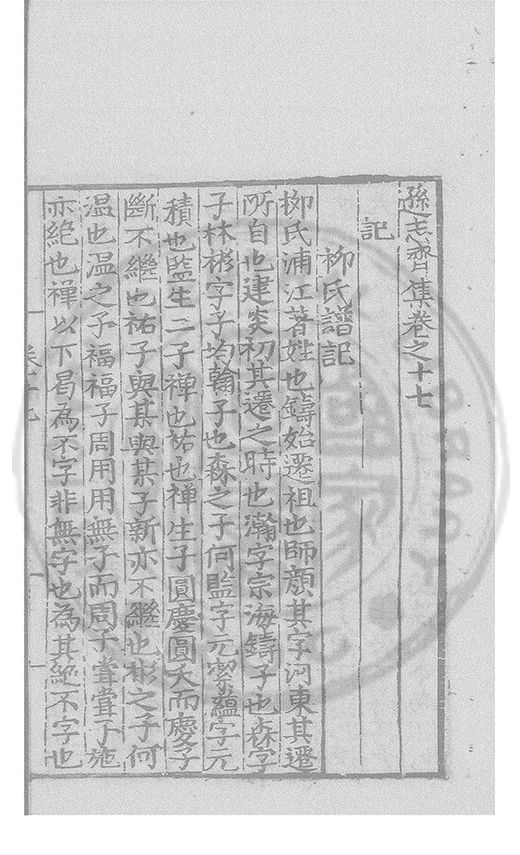 遜志齋集卷之十七
記
柳氏譜記
柳氏浦江著姓也鑄始遷祖也師顔其字河東其遷
所自也建炎初其遷之時也瀚字宗海鑄子也森字
子林彬字子均翰子也森之子何監字元絜藴字元
積也監生二子禪也祐也禪生子圓慶圓夭而慶子
斷不繼也祐子與某與某子新亦不繼也彬之子何
温也温之子福福子周用用無子而周子耷耷子施
亦絶也禪以下曷為不字非無字也為其絶不字也
卷十七